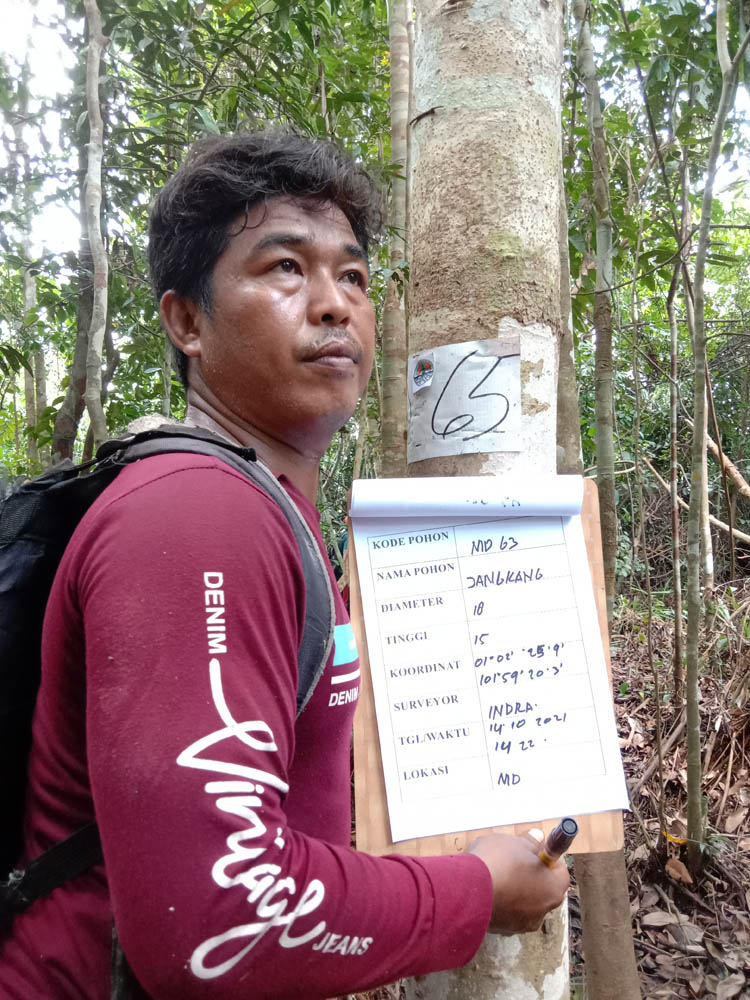 65
KODE POHON MD 63
NAMA POHON JANGKANG
DIAMETER 18
TINGGI 15
KOORDINAT 01°02' 25'9'
101°59' 20'3'
SURVEYOR INDRA.
TGL/WAKTU 14 10 2021
14 22.
LOKASI MD
DENIM
Vintage
JEANS
DENIM